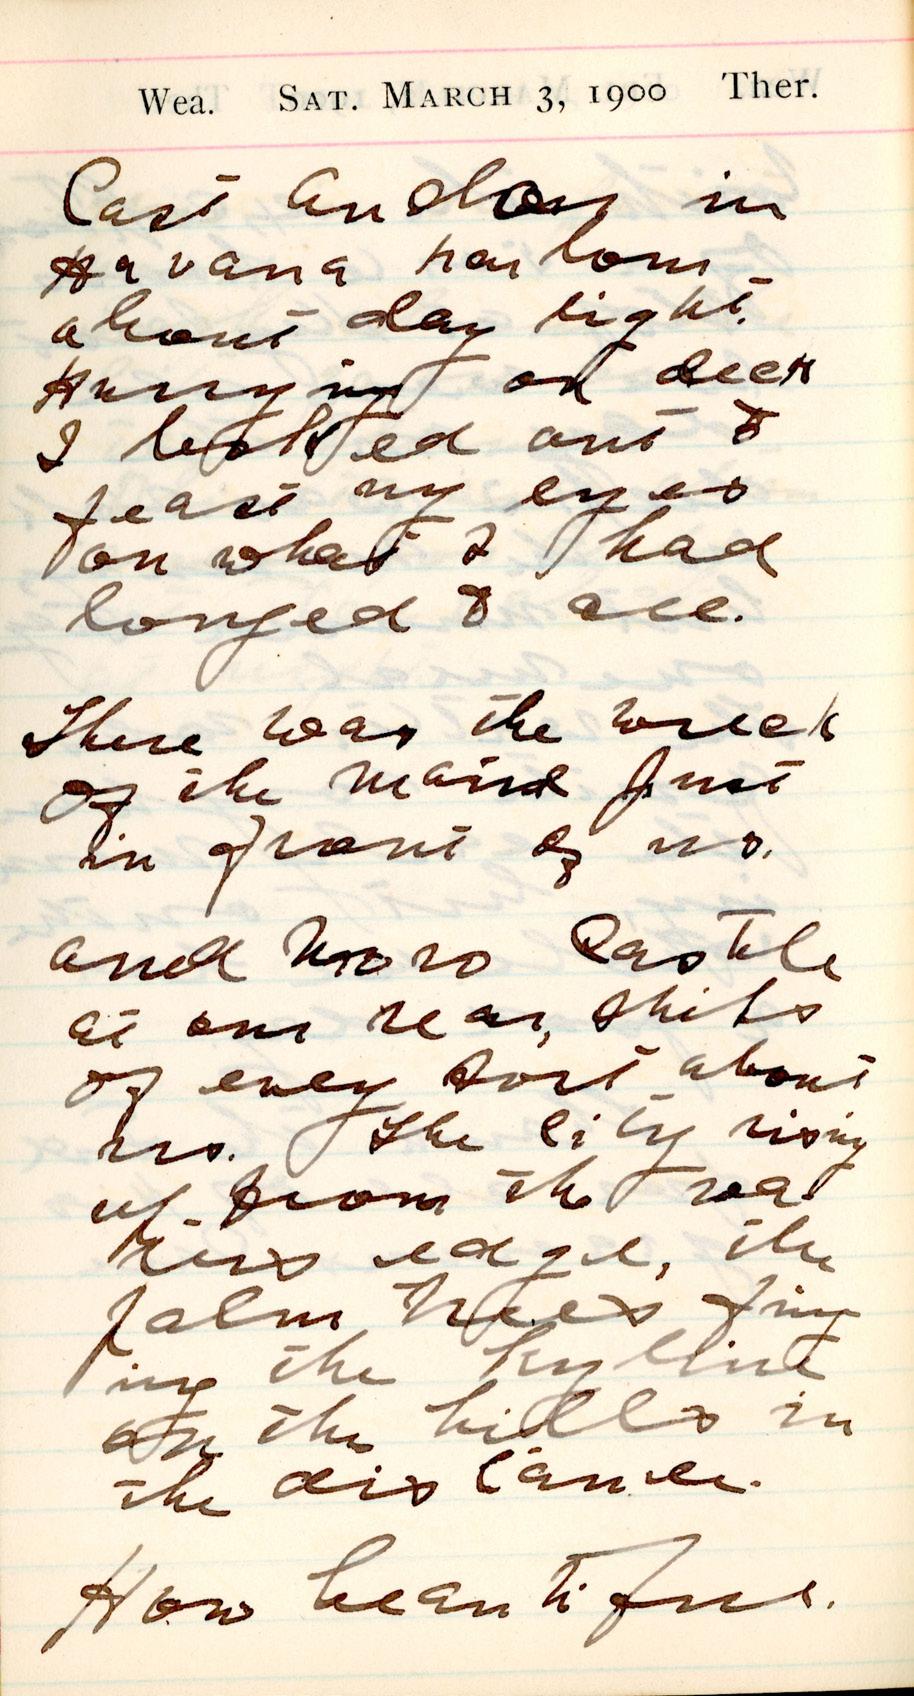 Wea. SAT. MARCH 3, 1900 Ther.
Cast anchor in
Havana harbour
about day light.
Hurrying on deck
I looked out to
feast my eyes
on what I had
longed to see.
There was the wreck
of the Maine just
in front of us.
and Moro Castle
at our rear, ships
of every sort about
us. The city rising
up from the wa
ters edge, the
palm trees
ing the skyline
on the hills in
the distance.
How beautiful.